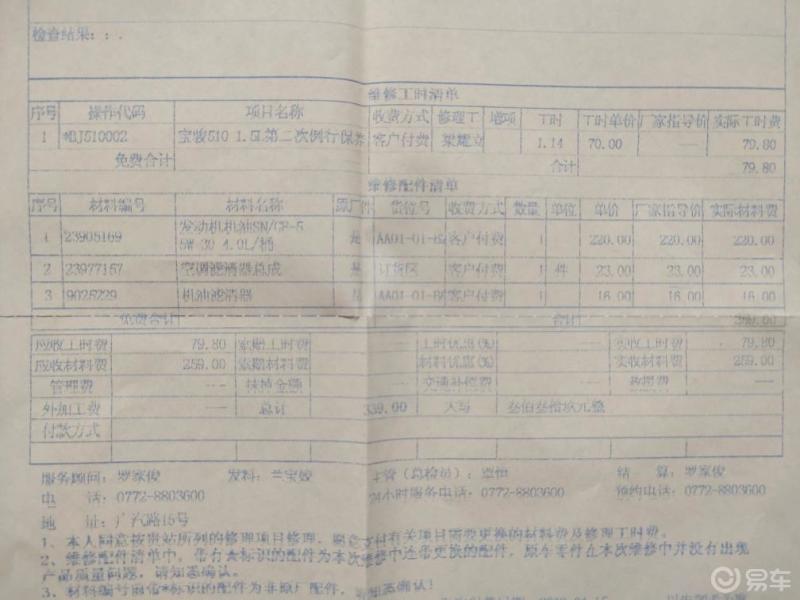 检查结果：：.
维修工时清单
序号 操作代码 项目名称 收费方式 修理工 增项 工时 工时单价 厂家指导价 实际工时费
1 *BJ510002 宝骏510 1.5L第二次例行保养 客户付费 梁耀立 1.14 70.00 —— 79.80
免费合计 合计 79.80
维修配件清单
序号 材料编号 材料名称 原厂件 货位号 收费方式 数量 单位 单价 厂家指导价 实际材料费
1 23905169 发动机机油SN/GF-5 5W-30 4.0L/桶 是 客户付费 1 220.00 220.00 220.00
2 23977157 空调滤清器总成 是 订货区 客户付费 1 件 23.00 23.00 23.00
3 9025229 机油滤清器 是 客户付费 1 16.00 16.00 16.00
免费合计 合计
应收工时费 79.80 索赔工时费 —— 工时优惠(%) —— 实收工时费 79.80
应收材料费 259.00 索赔材料费 —— 材料优惠(%) —— 实收材料费 259.00
管理费 —— —— ——
外加工费 —— 总计 339.00 大写 叁佰叁拾玖元整
付款方式
服务顾问：罗家俊 发料：兰宝姣 主管（总检员）：覃恒 结 算：罗家俊
电 话：0772-8803600 24小时服务电话：0772-8803600 预约电话：0772-8803600
地 址：广汽路15号
1、本人同意按贵站所列的修理项目修理，愿意支付有关项目需要更换的材料费及修理工时费。
2、维修配件清单中，带有★标识的配件为本次维修中连带更换的配件，原车零件在本次维修中并没有出现
产品质量问题，请知悉确认。
3、材料编号前带*标识的配件为非原厂配件，请知悉确认！
易车